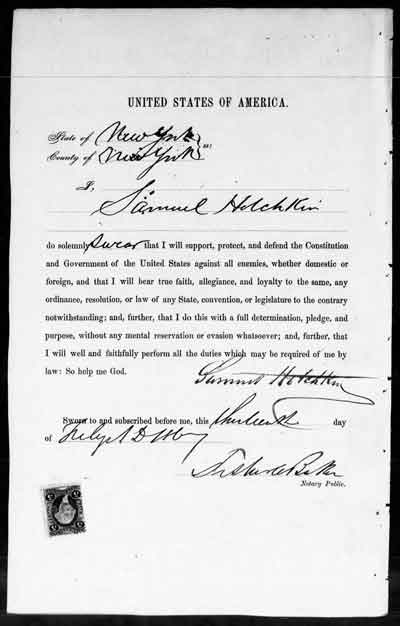 UNITED STATES OF AMERICA.
State of New York
County of New York } ss:
I,
Samuel Hotchkin
do solemnly swear that I will support, protect, and defend the Constitution
and Government of the United States against all enemies, whether domestic or
foreign, and that I will bear true faith, allegiance, and loyalty to the same, any
ordinance, resolution, or law of any State, convention, or legislature to the contrary
notwithstanding; and, further, that I do this with a full determination, pledge, and
purpose, without any mental reservation or evasion whatsoever; and, further, that
I will well and faithfully perform all the duties which may be required of me by
law: So help me God.
Samuel Hotchkin
Sworn to and subscribed before me, this day
of July A D
Baker
Notary Public.